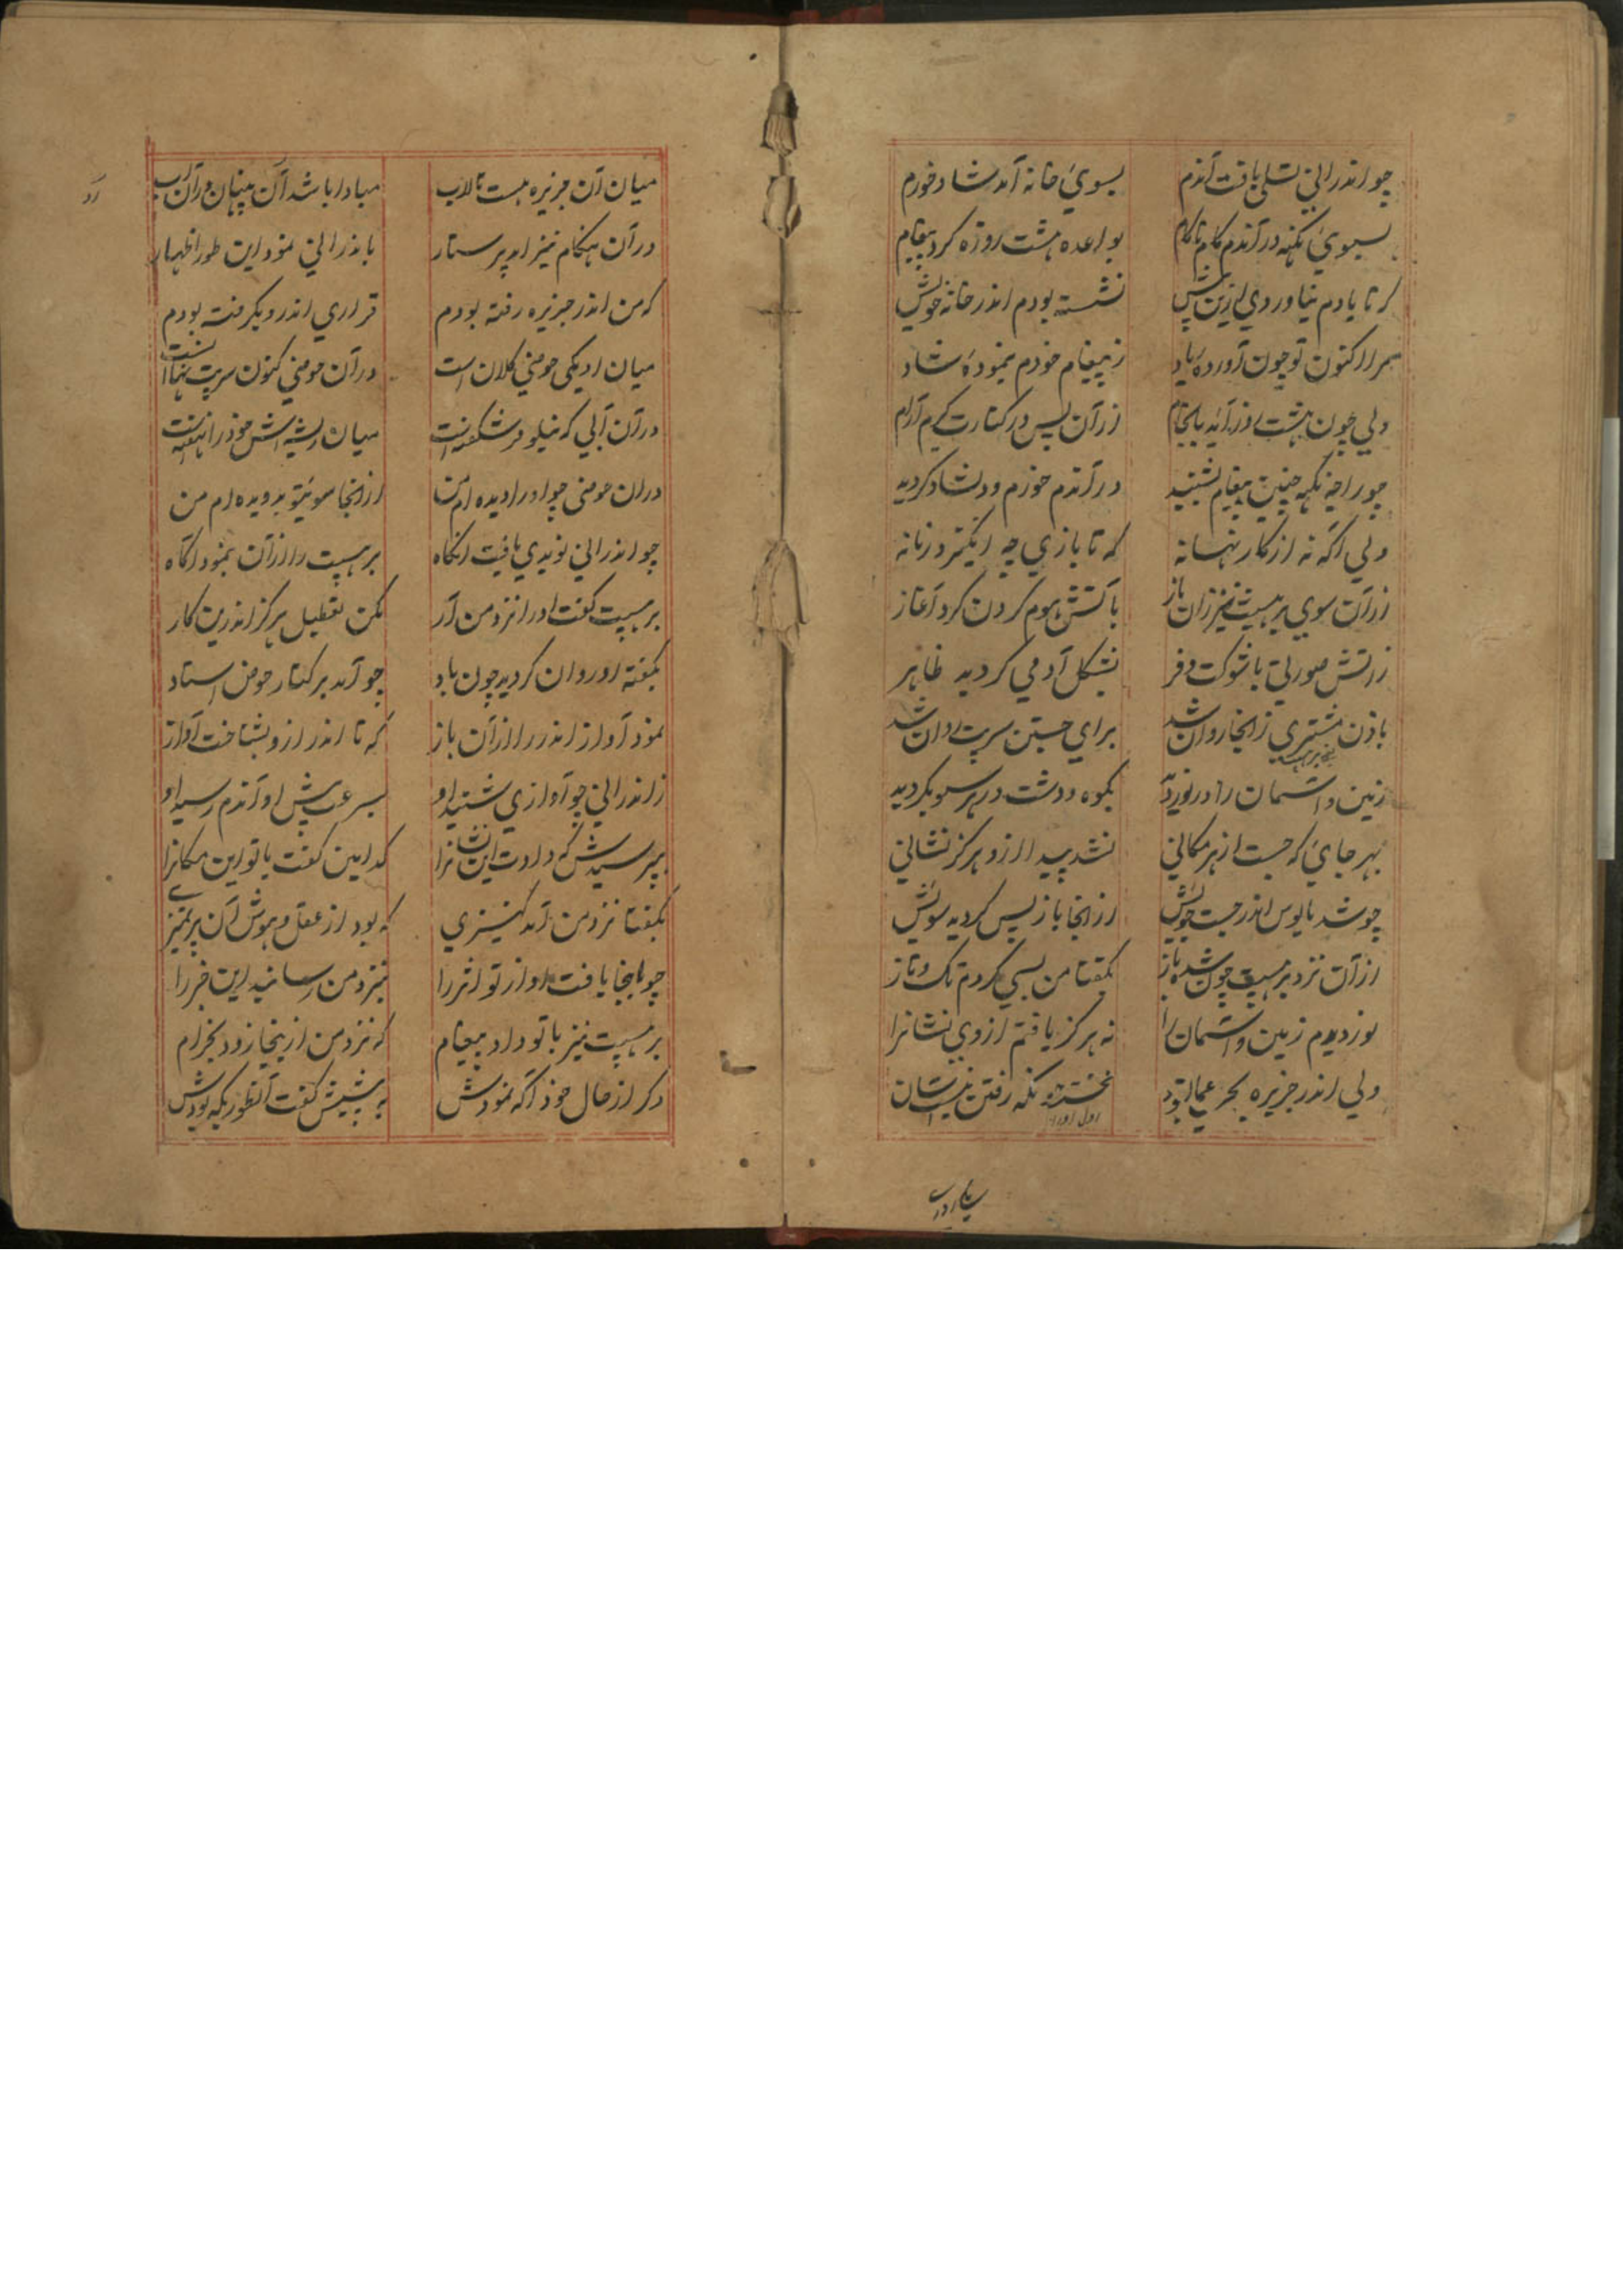 چو اندرانی تسلی یافت آندم بسوئ خانه آمد شاد و خورم
بسوئ نکهه در آندم کام ناکام بواعده هشت روزه کرد پیغام
که تا یادم نیاوردی ازین پیش نشسته بودم اندر خانه خویش
مرا اکنون تو چون آورده یاد ز پیغام خودم بنموده شاد
ولی چون هشت روز آید بانجام از آن پس در کنارت گیرم آرام
چو راجه نکهه چنین پیغام بشنید در آندم خورم و دلشاد گردید
ولی آگه نه از کار نهانه که تا بازی چه انگیزد زمانه
از آن سوی برهسپت نیز زان باز باتش هوم کردن کرد آغاز
ز آتش صورتی با شوکت و فر بشکل آدمی گردید ظاهر
باذن مشتری زانجا روان شد برای جستن سریت دوان شد
زمین و آسمان را در نوردید بکوه و دشت در هر سو بگردید
بهر جائ که جست از هر مکانی نشد پیدا ازو هرگز نشانی
چو شد مایوس اندر جست جویش از انجا باز پس گردید سویش
از آن نزد برهسپت چون شده باز بگفتا من بسی کردم تک و تاز
نوردیدم زمین و آسمان را نه هرگز یافتم از وی نشانرا
ولی اندر جزیره بحر عمان بود نجستم زانکه رفتن نیست آسان
اول اورا
میان آن جزیره هست تالاب مبادا باشد آن پنهان در آن آب
در آن هنگام نیز آمد پرستار باندرانی نمود این طور اظهار
که من اندر جزیره رفته بودم قراری اندرو بگرفته بودم
میان او یکی حوضی کلان است در آن حوضی کنون سریت نهانست
در آن آبی که نیلوفر شکفته است میان ریشه اش خود را نهفته است
در آن حوضی چو او را دیده ام من از انجا سوئ تو بدویده ام من
چو اندرانی نویدی یافت آنگاه برهسپت را از آن بنمود آگاه
برهسپت گفت او را نزد من آر مکن تعطیل هرگز اندرین کار
بگفته او روان گردید چون باد چو آمد بر کنار حوض استاد
نمود آواز اندر را از آن باز که تا اندر ازو بشناخت آواز
ز اندرانی چو آوازی شنید او بسرعت پیش او آندم رسید او
بپرسیدش که دادت این نشانرا کدامین گفت با تو این مکانرا
بگفتا نزد من آمد کنیزی که بود از عقل و هوش آن پر تمیزی
چو اینجا یافت او از تو اثر را بنزد من رسانید این خبر را
برهسپت نیز با تو داد پیغام که نزد من ازینجا زود بخرام
دگر از حال خود آگه نمودش به پیشش گفت آنطوریکه بودش